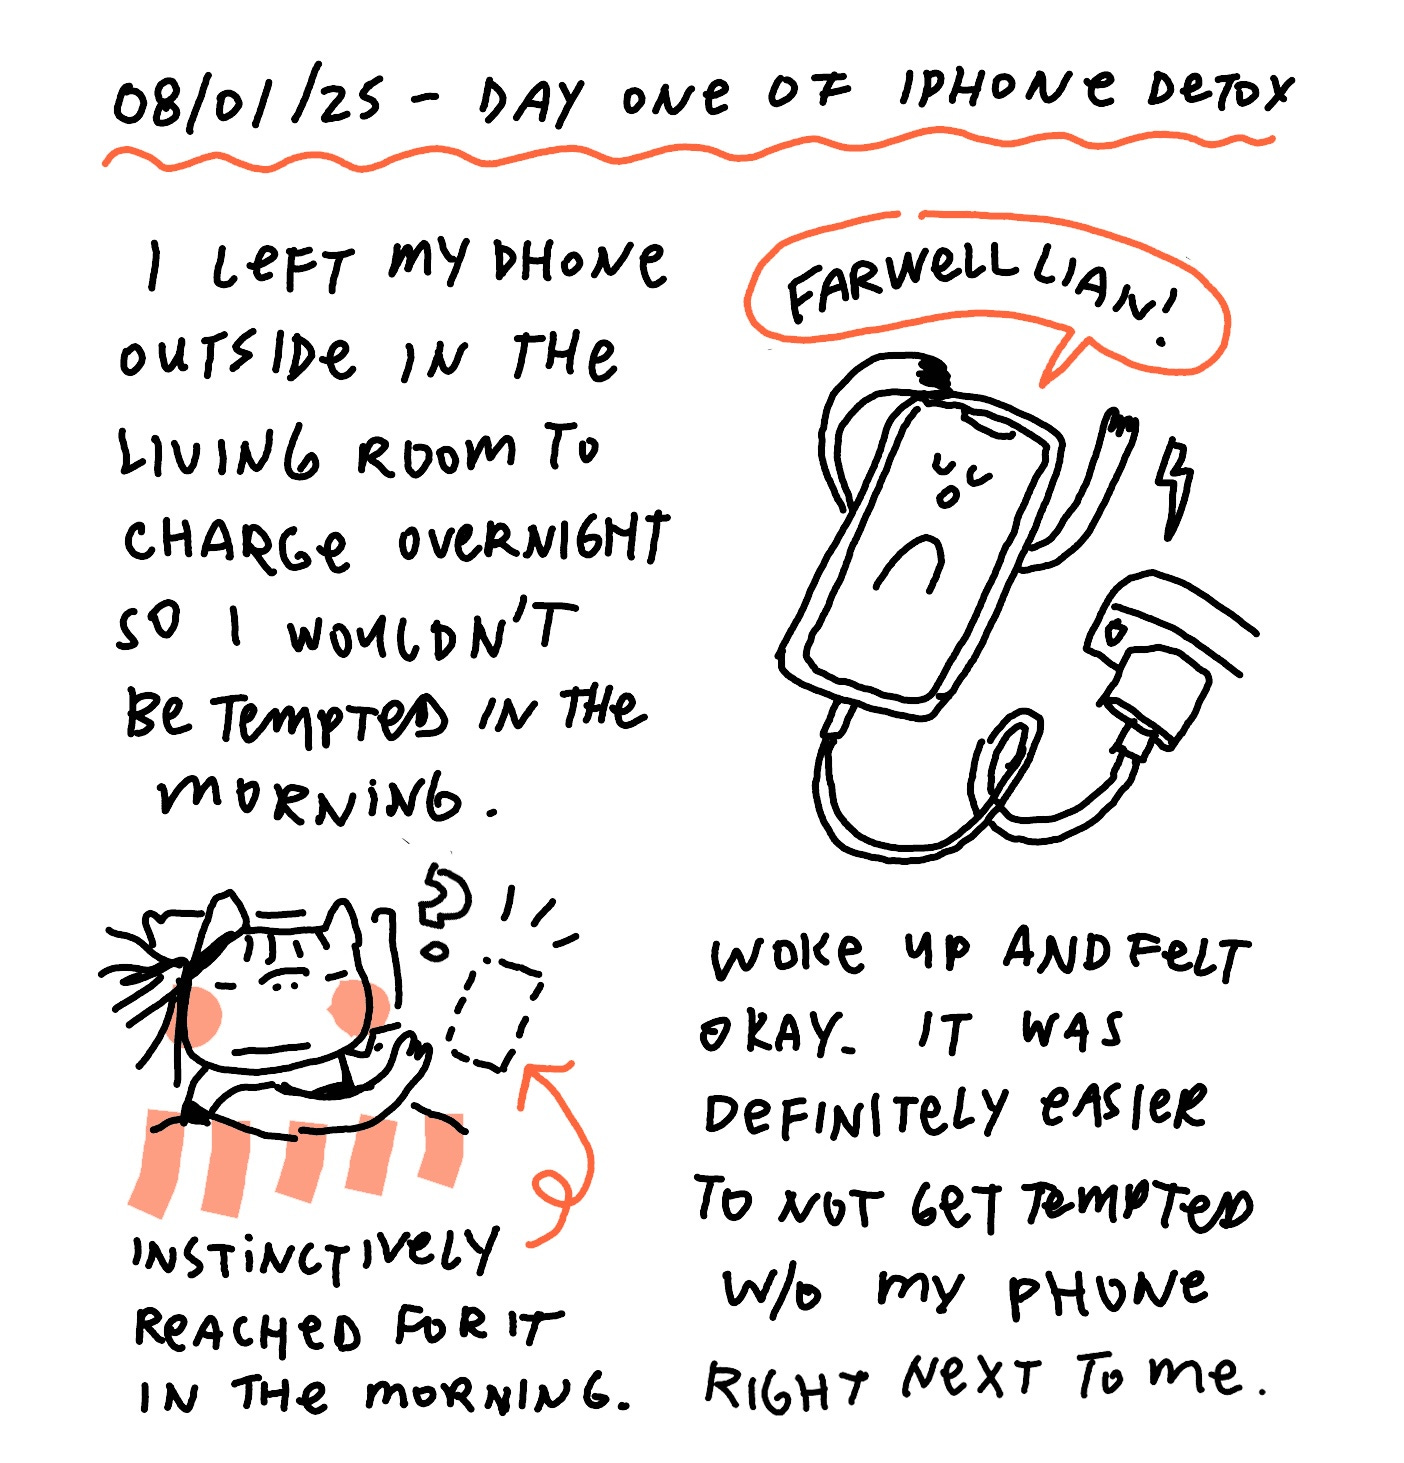 08/01/25 - DAY ONE OF IPHONE DETOX
I LEFT MY PHONE
OUTSIDE IN THE
LIVING ROOM TO
CHARGE OVERNIGHT
SO I WOULDN'T
BE TEMPTED IN THE
MORNING.
FARWELL LIAN!
?
INSTINCTIVELY
REACHED FOR IT
IN THE MORNING.
WOKE UP AND FELT
OKAY. IT WAS
DEFINITELY EASIER
TO NOT GET TEMPTED
W/O MY PHONE
RIGHT NEXT TO ME.